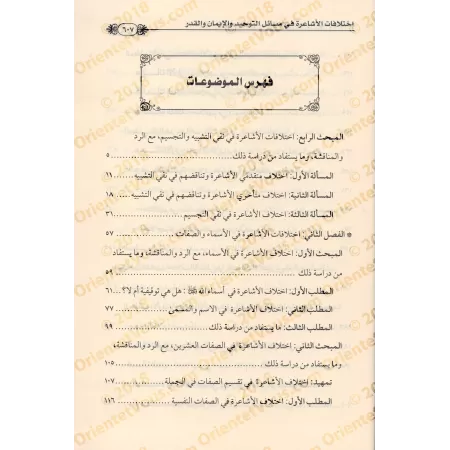 اختلافات الأشاعرة في مسائل التوحيد والإيمان والقدر
٦٠٧
فهرس الموضوعات
المبحث الرابع: اختلافات الأشاعرة في نفي التشبيه والتجسيم، مع الرد
والمناقشة، وما يستفاد من دراسة ذلك ........ ٥
المسألة الأولى: اختلاف متقدمي الأشاعرة وتناقضهم في نفي التشبيه ........ ١١
المسألة الثانية: اختلاف متأخري الأشاعرة وتناقضهم في نفي التشبيه ........ ١٨
المسألة الثالثة: اختلاف الأشاعرة في نفي التجسيم ........ ٣١
* الفصل الثاني: اختلافات الأشاعرة في الأسماء والصفات ........ ٥٧
المبحث الأول: اختلاف الأشاعرة في الأسماء، مع الرد والمناقشة، وما يستفاد
من دراسة ذلك ........ ٥٩
المطلب الأول: اختلاف الأشاعرة في أسماء الله ﷻ: هل هي توقيفية أم لا؟ ........ ٦١
المطلب الثاني: اختلاف الأشاعرة في الاسم والمسمى ........ ٧٧
المطلب الثالث: ما يستفاد من دراسة ذلك ........ ٩٩
المبحث الثاني: اختلاف الأشاعرة في الصفات العشرين، مع الرد والمناقشة،
وما يستفاد من دراسة ذلك ........ ١٠٥
تمهيد: اختلاف الأشاعرة في تقسيم الصفات في الجملة ........ ١٠٧
المطلب الأول: اختلاف الأشاعرة في الصفات النفسية ........ ١١٦
OrientetVous.com © 2018